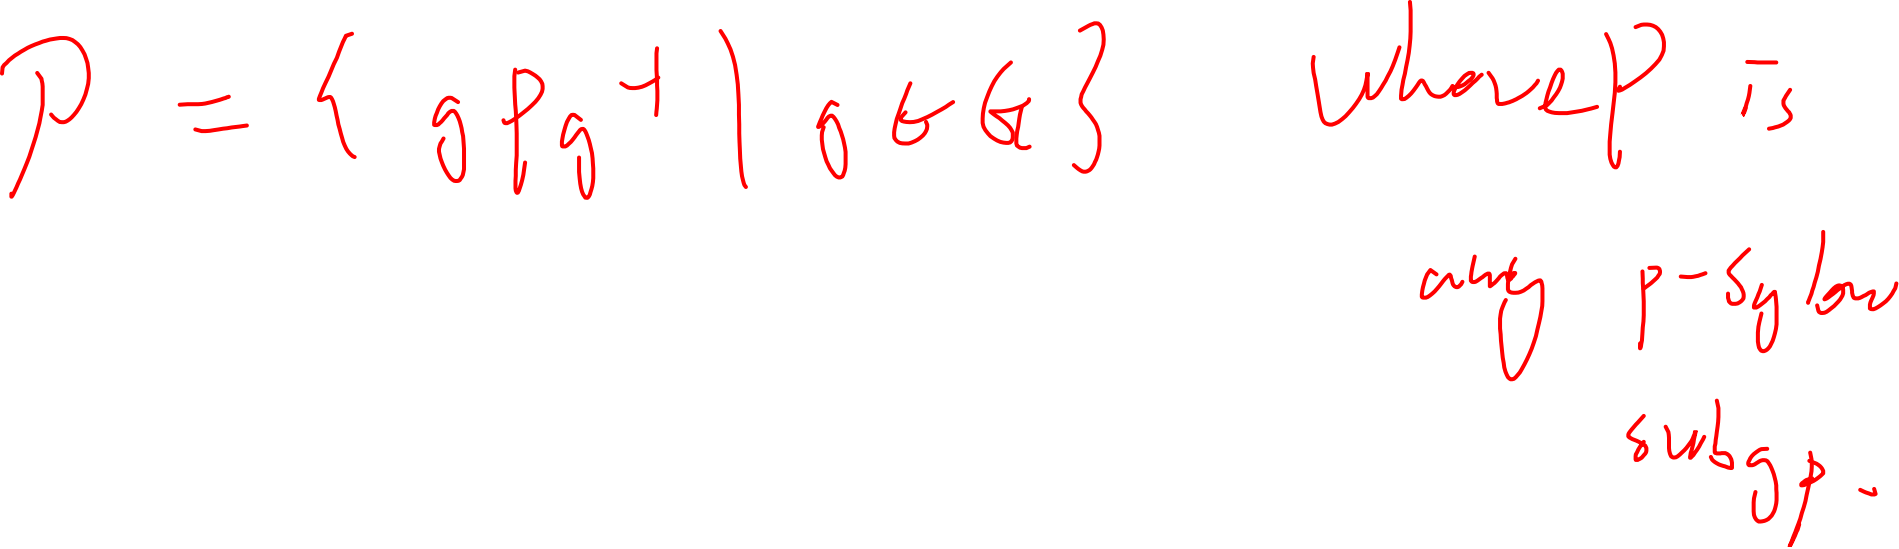 P = { gPg⁻¹ | g ∈ G } where P is
any p-Sylow
subgp.